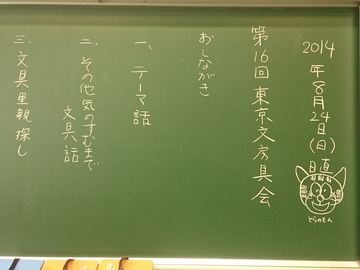 2014年8月24日(日)
日直
とらのもん
第16回 東京文房具会
おしながき
一、テーマ話
二、その他気のすむまで
文具話
三、文具里親探し